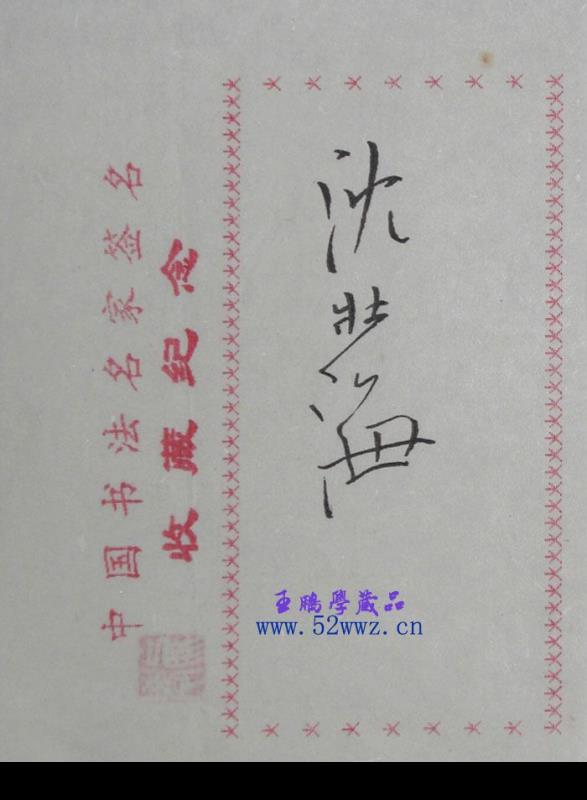 中国书法名家签名
收藏纪念
沈壮海
王鵬學藏品
www.52wwz.cn